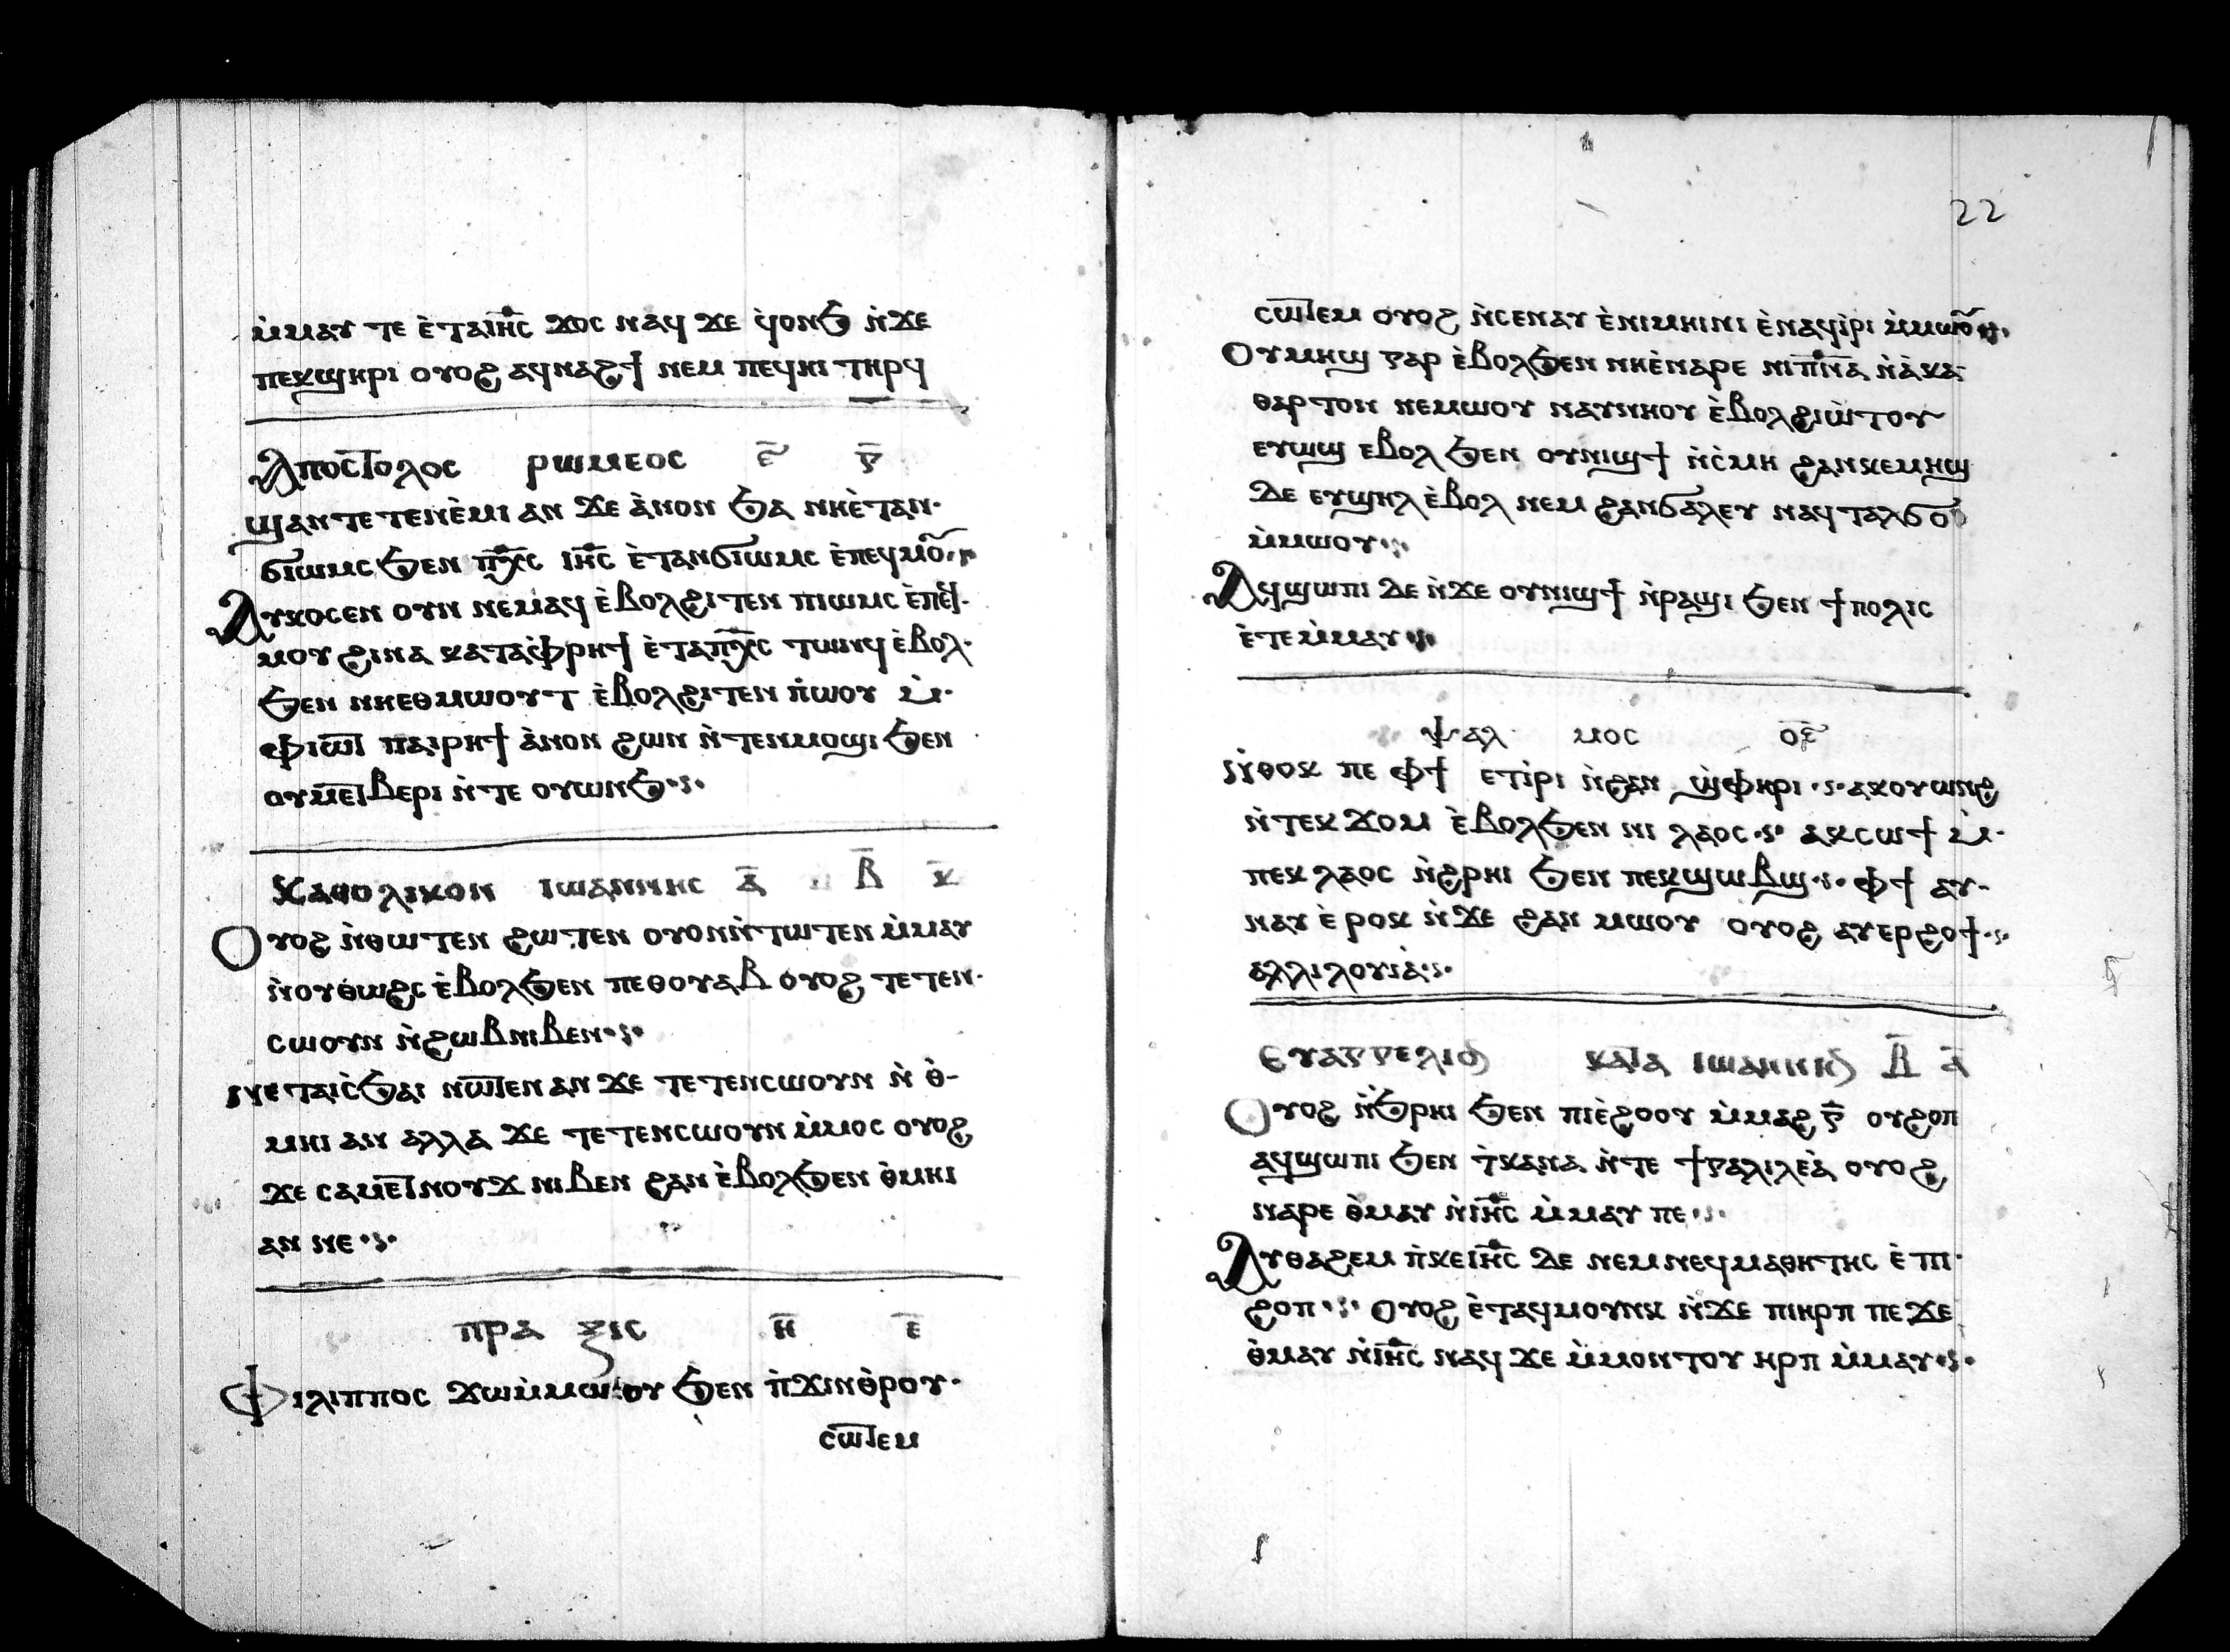 ⲙ̀ⲙⲁⲩ ⲧⲉ ⲉ̀ⲧⲁⲓⲏ̅ⲥ ϫⲟⲥ ⲛⲁϥ ϫⲉ ϥ̀ⲟⲛϧ ⲛ̀ϫⲉ
ⲡⲉⲕϣⲏⲣⲓ ⲟⲩⲟϩ ⲁϥⲛⲁϩϯ ⲛⲉⲙ ⲡⲉϥⲏⲓ ⲧⲏⲣϥ
Ⲁⲡⲟⲥⲧⲟⲗⲟⲥ ⲣⲱⲙⲉⲟⲥ ⲉ̅ ⲅ̅
ϣⲁⲛⲧⲉⲧⲉⲛⲉ̀ⲙⲓ ⲁⲛ ϫⲉ ⲁ̀ⲛⲟⲛ ϧⲁ ⲛⲏⲉ̀ⲧⲁⲛ·
ϭⲓⲱⲙⲥ ϧⲉⲛ ⲡⲭ̅ⲥ ⲓⲏ̅ⲥ ⲉ̀ⲧⲁⲛϭⲓⲱⲙⲥ ⲉ̀ⲡⲉϥⲙⲟ̅
Ⲁⲩⲕⲟⲥⲉⲛ ⲟⲩⲛ ⲛⲉⲙⲁϥ ⲉ̀ⲃⲟⲗϩⲓⲧⲉⲛ ⲡⲓⲱⲙⲥ ⲉ̀ⲡϥ·
ⲙⲟⲩ ϩⲓⲛⲁ ⲕⲁⲧⲁⲫ̀ⲣⲏϯ ⲉ̀ⲧⲁⲡⲭ̅ⲥ ⲧⲱⲛϥ ⲉ̀ⲃⲟⲗ·
ϧⲉⲛ ⲛⲏⲉⲑⲙⲱⲟⲩⲧ ⲉ̀ⲃⲟⲗϩⲓⲧⲉⲛ ⲡ̀ⲱⲟⲩ ⲙ̀·
ⲫⲓⲱⲧ ⲡⲁⲓⲣⲏϯ ⲁ̀ⲛⲟⲛ ϩⲱⲛ ⲛ̀ⲧⲉⲛⲙⲟϣⲓ ϧⲉⲛ
ⲟⲩⲙⲉⲧⲃⲉⲣⲓ ⲛ̀ⲧⲉ ⲟⲩⲱⲛϧ·ⲋ·
Ⲕⲁⲑⲟⲗⲓⲕⲟⲛ ⲓⲱⲁⲛⲛⲏⲥ ⲁ̅ ⲃ̅ ⲕ̅
Ⲟⲩⲟϩ ⲛ̀ⲑⲱⲧⲉⲛ ϩⲱⲧⲉⲛ ⲟⲩⲟⲛⲛ̀ⲧⲱⲧⲉⲛ ⲙ̀ⲙⲁⲩ
ⲛ̀ⲟⲩⲑⲱϩⲥ ⲉ̀ⲃⲟⲗϧⲉⲛ ⲡⲉⲑⲟⲩⲁⲃ ⲟⲩⲟϩ ⲧⲉⲧⲉⲛ·
ⲥⲱⲟⲩⲛ ⲛ̀ϩⲱⲃⲛⲓⲃⲉⲛ·ⲋ·
ⲛⲉⲧⲁⲓⲥ̀ϧⲁⲓ ⲛⲱⲧⲉⲛ ⲁⲛ ϫⲉ ⲧⲉⲧⲉⲛⲥⲱⲟⲩⲛ ⲛ̀ ⲑ̀-
ⲙⲏⲓ ⲁⲛ ⲁⲗⲗⲁ ϫⲉ ⲧⲉⲧⲉⲛⲥⲱⲟⲩⲛ ⲙ̀ⲙⲟⲥ ⲟⲩⲟϩ
ϫⲉ ⲥⲁⲙⲉⲧⲛⲟⲩϫ ⲛⲓⲃⲉⲛ ϩⲁⲛ ⲉ̀ⲃⲟⲗϧⲉⲛ ⲑ̀ⲙⲏⲓ
ⲁⲛ ⲛⲉ·ⲋ·
ⲡⲣⲁ ⲝⲓⲥ ⲏ̅ ⲉ̅
Ⲫⲓⲗⲓⲡⲡⲟⲥ ϫⲱⲙ̀ⲙⲱⲟⲩ ϧⲉⲛ ⲡ̀ϫⲓⲛⲑ̀ⲣⲟⲩ·
ⲥⲱⲧⲉⲙ
22
ⲥⲱⲧⲉⲙ ⲟⲩⲟϩ ⲛ̀ⲥⲉⲛⲁⲩ ⲉ̀ⲛⲓⲙⲏⲓⲛⲓ ⲉ̀ⲛⲁϥⲓ̀ⲣⲓ ⲙ̀ⲙⲱⲟⲩ
Ⲟⲩⲙⲏϣ ⲅⲁⲣ ⲉ̀ⲃⲟⲗϧⲉⲛ ⲛⲏⲉ̀ⲛⲁⲣⲉ ⲛⲓⲡ̅ⲛ̅ⲁ ⲛ̀ⲁ̀ⲕⲁ
ⲑⲁⲣⲧⲟⲛ ⲛⲉⲙⲱⲟⲩ ⲛⲁⲩⲛⲏⲟⲩ ⲉ̀ⲃⲟⲗϩⲓⲱ̀ⲧⲟⲩ
ⲉⲩⲱϣ ⲉⲃⲟⲗ ϧⲉⲛ ⲟⲩⲛⲓϣϯ ⲛ̀ⲥ̀ⲙⲏ ϩⲁⲛⲕⲉⲙⲏϣ
ⲇⲉ ⲉⲩϣⲏⲗ ⲉ̀ⲃⲟⲗ ⲛⲉⲙ ϩⲁⲛϭⲁⲗⲉⲩ ⲛⲁϥⲧⲁⲗϭⲟ
ⲙ̀ⲙⲱⲟⲩ·ⲋ·
Ⲁϥϣⲱⲡⲓ ⲇⲉ ⲛ̀ϫⲉ ⲟⲩⲛⲓϣϯ ⲛ̀ⲣⲁϣⲓ ϧⲉⲛ ϯⲡⲟⲗⲓⲥ
ⲉ̀ⲧⲉⲙ̀ⲙⲁⲩ·ⲋ·
ⲯⲁⲗ ⲙⲟⲥ ⲟ̅ⲉ̅
ⲛ̀ⲑⲟⲕ ⲡⲉ ⲫϯ ⲉⲧⲓ̀ⲣⲓ ⲛ̀ϩⲁⲛ ϣ̀ⲫⲏⲣⲓ ·ⲋ· ⲁⲕⲟⲩⲱⲛϩ
ⲛ̀ⲧⲉⲕ ϫⲟⲙ ⲉ̀ⲃⲟⲗϧⲉⲛ ⲛⲓ ⲗⲁⲟⲥ·ⲋ· ⲁⲕⲥⲱϯ ⲙ̀·
ⲡⲉⲕ ⲗⲁⲟⲥ ⲛ̀ϩⲣⲏⲓ ϧⲉⲛ ⲡⲉⲕϣⲱⲃϣ·ⲋ· ⲫϯ ⲁⲩ-
ⲛⲁⲩ ⲉ̀ⲣⲟⲕ ⲛ̀ϫⲉ ϩⲁⲛ ⲙⲱⲟⲩ ⲟⲩⲟϩ ⲁⲩⲉⲣϩⲟϯ·ⲋ·
ⲁⲗⲗⲓⲗⲟⲩⲓⲁ̀·ⲋ·
Ⲉⲩⲁⲅⲅⲉⲗⲓⲟⲛ ⲕⲁⲧⲁ ⲓⲱⲁⲛⲛⲏⲛ ⲃ̅ ⲁ̅
Ⲟⲩⲟϩ ⲛ̀ϧⲣⲏⲓ ϧⲉⲛ ⲡⲓⲉ̀ϩⲟⲟⲩ ⲙ̀ⲙⲁϩ ⲅ̅ ⲟⲩϩⲟⲡ
ⲁϥϣⲱⲡⲓ ϧⲉⲛ ⲧ̀ⲕⲁⲛⲁ ⲛ̀ⲧⲉ ϯⲅⲁⲗⲓⲗⲉⲁ̀ ⲟⲩⲟϩ
ⲛⲁⲣⲉ ⲑ̀ⲙⲁⲩ ⲛ̀ⲓⲏ̅ⲥ ⲙ̀ⲙⲁⲩ ⲡⲉ·ⲋ·
Ⲁⲩⲑⲁϩⲉⲙ ⲡ̀ⲕⲉⲓⲏ̅ⲥ ⲇⲉ ⲛⲉⲙⲛⲉϥⲙⲁⲑⲏⲧⲏⲥ ⲉ̀ ⲡⲓ·
ϩⲟⲡ·ⲋ· Ⲟⲩⲟϩ ⲉ̀ⲧⲁϥⲙⲟⲩⲛⲕ ⲛ̀ϫⲉ ⲡⲓⲏⲣⲡ ⲡⲉϫⲉ
ⲑ̀ⲙⲁⲩ ⲛ̀ⲓⲏ̅ⲥ ⲛⲁϥ ϫⲉ ⲙ̀ⲙⲟⲛⲧⲟⲩ ⲏⲣⲡ ⲙ̀ⲙⲁⲩ·ⲋ·